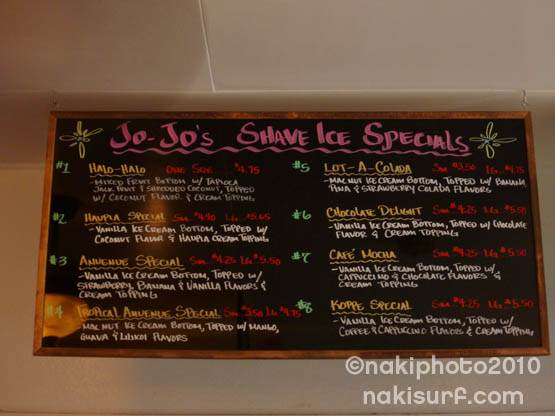 Jo-Jo's Shave Ice Specials
#1 Halo-Halo One Size $4.75
-Mixed Fruit Bottom w/ Tapioca
Jack Fruit & Shredded Coconut, Topped
w/ Coconut Flavor & Cream Topping
#2 Haupia Special Sm. $4.90 Lg. $5.65
-Vanilla Ice Cream Bottom, Topped w/
Coconut Flavor & Haupia Cream Topping
#3 Anuenue Special Sm. $4.25 Lg. $5.50
-Vanilla Ice Cream Bottom, Topped w/
Strawberry, Banana & Vanilla Flavors &
Cream Topping
#4 Tropical Anuenue Special Sm. $3.50 Lg. $4.75
-Mac Nut Ice Cream Bottom, Topped w/ Mango,
Guava & Lilikoi Flavors
#5 Lot-A-Colada Sm. $3.50 Lg. $4.75
-Mac Nut Ice Cream Bottom, Topped w/ Banana,
Pina & Strawberry Colada Flavors
#6 Chocolate Delight Sm. $4.25 Lg. $5.50
-Vanilla Ice Cream Bottom, Topped w/ Chocolate
Flavor & Cream Topping
#7 Café Mocha Sm. $4.25 Lg. $5.50
-Vanilla Ice Cream Bottom, Topped w/
Cappuccino & Chocolate Flavors &
Cream Topping
#8 Koppe Special Sm. $4.25 Lg. $5.50
-Vanilla Ice Cream Bottom, Topped w/
Coffee & Cappuccino Flavors & Cream Topping
©nakiphoto2010
nakisurf.com